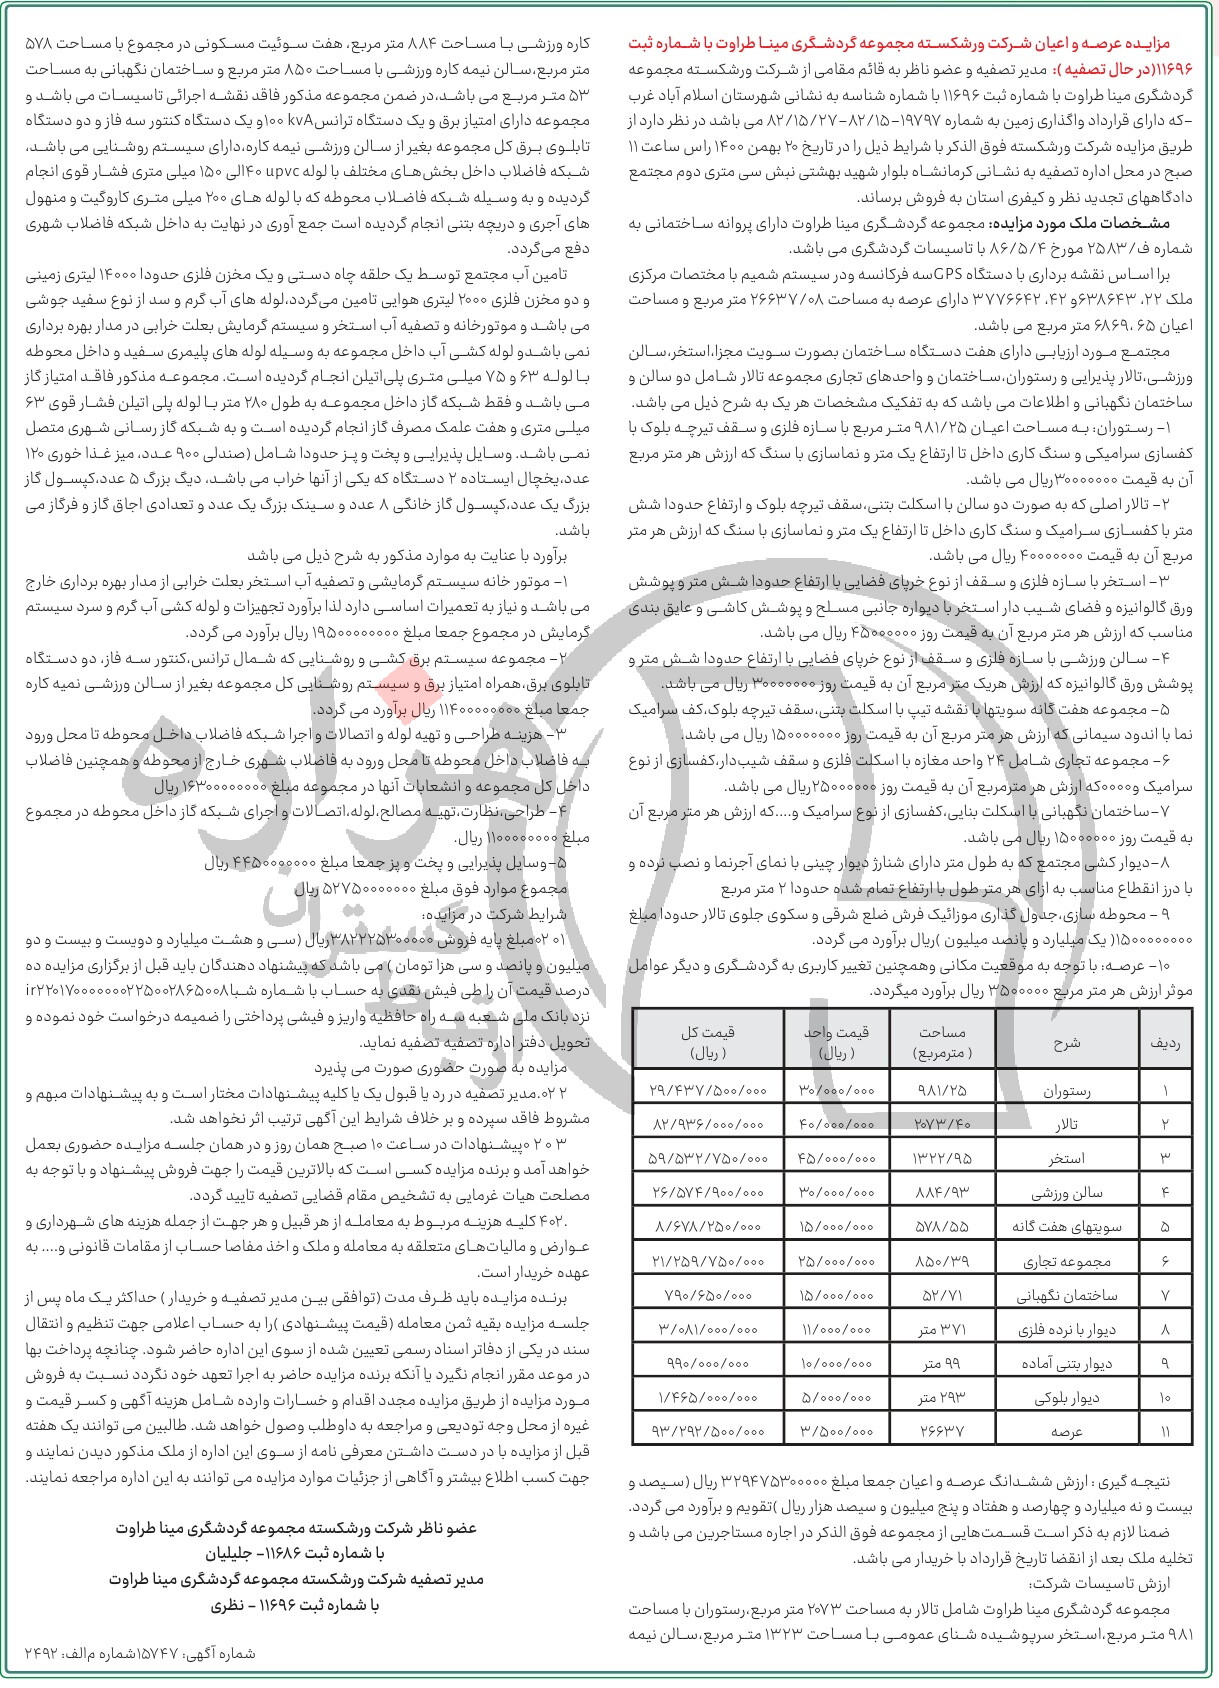 مزایده عرصه و اعیان شرکت ورشکسته مجموعه گردشگری مینا طراوت با شماره ثبت
۱۱۶۹۶(در حال تصفیه ): مدیر تصفیه و عضو ناظر به قائم مقامی از شرکت ورشکسته مجموعه
گردشگری مینا طراوت با شماره ثبت ۱۱۶۹۶ با شماره شناسه به نشانی شهرستان اسلام آباد غرب
-که دارای قرارداد واگذاری زمین به شماره ۱۹۷۹۷-۸۲/۱۵-۸۲/۱۵/۲۷ می باشد در نظر دارد از
طریق مزایده شرکت ورشکسته فوق الذکر با شرایط ذیل را در تاریخ ۲۰ بهمن ۱۴۰۰ راس ساعت ۱۱
صبح در محل اداره تصفیه به نشانی کرمانشاه بلوار شهید بهشتی نبش سی متری دوم مجتمع
دادگاههای تجدید نظر و کیفری استان به فروش برساند.
مشخصات ملک مورد مزایده: مجموعه گردشگری مینا طراوت دارای پروانه ساختمانی به
شماره ف/۲۵۸۳ مورخ ۸۶/۵/۴ با تاسیسات گردشگری می باشد.
برا اساس نقشه برداری با دستگاه GPSسه فرکانسه ودر سیستم شمیم با مختصات مرکزی
ملک ۲۲، ۶۳۸۶۴۳و ۴۲، ۳۷۷۶۶۴۲ دارای عرصه به مساحت ۲۶۶۳۷/۰۸ متر مربع و مساحت
اعیان ۶۵ ،۶۸۶۹ متر مربع می باشد.
مجتمع مورد ارزیابی دارای هفت دستگاه ساختمان بصورت سویت مجزا،استخر،سالن
ورزشی،تالار پذیرایی و رستوران،ساختمان و واحدهای تجاری مجموعه تالار شامل دو سالن و
ساختمان نگهبانی و اطلاعات می باشد که به تفکیک مشخصات هر یک به شرح ذیل می باشد.
۱- رستوران: به مساحت اعیان ۹۸۱/۲۵ متر مربع با سازه فلزی و سقف تیرچه بلوک با
کفسازی سرامیکی و سنگ کاری داخل تا ارتفاع یک متر و نماسازی با سنگ که ارزش هر متر مربع
آن به قیمت ۳۰۰۰۰۰۰۰ریال می باشد.
۲- تالار اصلی که به صورت دو سالن با اسکلت بتنی،سقف تیرچه بلوک و ارتفاع حدودا شش
متر با کفسازی سرامیک و سنگ کاری داخل تا ارتفاع یک متر و نماسازی با سنگ که ارزش هر متر
مربع آن به قیمت ۴۰۰۰۰۰۰۰ ریال می باشد.
۳- استخر با سازه فلزی و سقف از نوع خرپای فضایی با ارتفاع حدودا شش متر و پوشش
ورق گالوانیزه و فضای شیب دار استخر با دیواره جانبی مسلح و پوشش کاشی و عایق بندی
مناسب که ارزش هر متر مربع آن به قیمت روز ۴۵۰۰۰۰۰۰ ریال می باشد.
۴- سالن ورزشی با سازه فلزی و سقف از نوع خرپای فضایی با ارتفاع حدودا شش متر و
پوشش ورق گالوانیزه که ارزش هریک متر مربع آن به قیمت روز ۳۰۰۰۰۰۰۰ ریال می باشد.
۵- مجموعه هفت گانه سویتها با نقشه تیپ با اسکلت بتنی،سقف تیرچه بلوک،کف سرامیک
نما با اندود سیمانی که ارزش هر متر مربع آن به قیمت روز ۱۵۰۰۰۰۰۰ ریال می باشد.
۶- مجموعه تجاری شامل ۲۴ واحد مغازه با اسکلت فلزی و سقف شیب‌دار،کفسازی از نوع
سرامیک و۰۰۰۰که ارزش هر مترمربع آن به قیمت روز ۲۵۰۰۰۰۰۰ریال می باشد.
۷-ساختمان نگهبانی با اسکلت بنایی،کفسازی از نوع سرامیک و....که ارزش هر متر مربع آن
به قیمت روز ۱۵۰۰۰۰۰۰ ریال می باشد.
۸-دیوار کشی مجتمع که به طول متر دارای شناژ دیوار چینی با نمای آجرنما و نصب نرده و
با درز انقطاع مناسب به ازای هر متر طول با ارتفاع تمام شده حدودا ۲ متر مربع
۹ - محوطه سازی،جدول گذاری موزائیک فرش ضلع شرقی و سکوی جلوی تالار حدودا مبلغ
۱۵۰۰۰۰۰۰۰۰( یک میلیارد و پانصد میلیون )ریال برآورد می گردد.
۱۰- عرصه: با توجه به موقعیت مکانی وهمچنین تغییر کاربری به گردشگری و دیگر عوامل
موثر ارزش هر متر مربع ۳۵۰۰۰۰۰ ریال برآورد میگردد.
ردیف شرح مساحت ( مترمربع) قیمت واحد ( ریال) قیمت کل ( ریال)
۱ رستوران ۹۸۱/۲۵ ۳۰/۰۰۰/۰۰۰ ۲۹/۴۳۷/۵۰۰/۰۰۰
۲ تالار ۲۰۷۳/۴۰ ۴۰/۰۰۰/۰۰۰ ۸۲/۹۳۶/۰۰۰/۰۰۰
۳ استخر ۱۳۲۲/۹۵ ۴۵/۰۰۰/۰۰۰ ۵۹/۵۳۲/۷۵۰/۰۰۰
۴ سالن ورزشی ۸۸۴/۹۳ ۳۰/۰۰۰/۰۰۰ ۲۶/۵۷۴/۹۰۰/۰۰۰
۵ سویتهای هفت گانه ۵۷۸/۵۵ ۱۵/۰۰۰/۰۰۰ ۸/۶۷۸/۲۵۰/۰۰۰
۶ مجموعه تجاری ۸۵۰/۳۹ ۲۵/۰۰۰/۰۰۰ ۲۱/۲۵۹/۷۵۰/۰۰۰
۷ ساختمان نگهبانی ۵۲/۷۱ ۱۵/۰۰۰/۰۰۰ ۷۹۰/۶۵۰/۰۰۰
۸ دیوار با نرده فلزی ۳۷۱ متر ۱۱/۰۰۰/۰۰۰ ۳/۰۸۱/۰۰۰/۰۰۰
۹ دیوار بتنی آماده ۹۹ متر ۱۰/۰۰۰/۰۰۰ ۹۹۰/۰۰۰/۰۰۰
۱۰ دیوار بلوکی ۲۹۳ متر ۵/۰۰۰/۰۰۰ ۱/۴۶۵/۰۰۰/۰۰۰
۱۱ عرصه ۲۶۶۳۷ ۳/۵۰۰/۰۰۰ ۹۳/۲۹۲/۵۰۰/۰۰۰
نتیجه گیری : ارزش ششدانگ عرصه و اعیان جمعا مبلغ ۳۲۹۴۷۵۳۰۰۰۰۰ ریال (سیصد و
بیست و نه میلیارد و چهارصد و هفتاد و پنج میلیون و سیصد هزار ریال )تقویم و برآورد می گردد.
ضمنا لازم به ذکر است قسمت‌هایی از مجموعه فوق الذکر در اجاره مستاجرین می باشد و
تخلیه ملک بعد از انقضا تاریخ قرارداد با خریدار می باشد.
ارزش تاسیسات شرکت:
مجموعه گردشگری مینا طراوت شامل تالار به مساحت ۲۰۷۳ متر مربع،رستوران با مساحت
۹۸۱ متر مربع،استخر سرپوشیده شنای عمومی با مساحت ۱۳۲۳ متر مربع،سالن نیمه
کاره ورزشی با مساحت ۸۸۴ متر مربع، هفت سوئیت مسکونی در مجموع با مساحت ۵۷۸
متر مربع،سالن نیمه کاره ورزشی با مساحت ۸۵۰ متر مربع و ساختمان نگهبانی به مساحت
۵۳ متر مربع می باشد،در ضمن مجموعه مذکور فاقد نقشه اجرائی تاسیسات می باشد و
مجموعه دارای امتیاز برق و یک دستگاه ترانس۱۰۰ kvAو یک دستگاه کنتور سه فاز و دو دستگاه
تابلوی برق کل مجموعه بغیر از سالن ورزشی نیمه کاره،دارای سیستم روشنایی می باشد،
شبکه فاضلاب داخل بخش‌های مختلف با لوله upvc ۴۰الی ۱۵۰ میلی متری فشار قوی انجام
گردیده و به وسیله شبکه فاضلاب محوطه که با لوله های ۲۰۰ میلی متری کاروگیت و منهول
های آجری و دریچه بتنی انجام گردیده است جمع آوری در نهایت به داخل شبکه فاضلاب شهری
دفع می‌گردد.
تامین آب مجتمع توسط یک حلقه چاه دستی و یک مخزن فلزی حدودا ۱۴۰۰۰ لیتری زمینی
و دو مخزن فلزی ۲۰۰۰ لیتری هوایی تامین می‌گردد،لوله های آب گرم و سد از نوع سفید جوشی
می باشد و موتورخانه و تصفیه آب استخر و سیستم گرمایش بعلت خرابی در مدار بهره برداری
نمی باشدو لوله کشی آب داخل مجموعه به وسیله لوله های پلیمری سفید و داخل محوطه
با لوله ۶۳ و ۷۵ میلی متری پلی‌اتیلن انجام گردیده است. مجموعه مذکور فاقد امتیاز گاز
می باشد و فقط شبکه گاز داخل مجموعه به طول ۲۸۰ متر با لوله پلی اتیلن فشار قوی ۶۳
میلی متری و هفت علمک مصرف گاز انجام گردیده است و به شبکه گاز رسانی شهری متصل
نمی باشد. وسایل پذیرایی و پخت و پز حدودا شامل (صندلی ۹۰۰ عدد، میز غذا خوری ۱۲۰
عدد،یخچال ایستاده ۲ دستگاه که یکی از آنها خراب می باشد، دیگ بزرگ ۵ عدد،کپسول گاز
بزرگ یک عدد،کپسول گاز خانگی ۸ عدد و سینک بزرگ یک عدد و تعدادی اجاق گاز و فرگاز می
باشد.
برآورد با عنایت به موارد مذکور به شرح ذیل می باشد
۱- موتور خانه سیستم گرمایشی و تصفیه آب استخر بعلت خرابی از مدار بهره برداری خارج
می باشد و نیاز به تعمیرات اساسی دارد لذا برآورد تجهیزات و لوله کشی آب گرم و سرد سیستم
گرمایش در مجموع جمعا مبلغ ۱۹۵۰۰۰۰۰۰۰۰ ریال برآورد می گردد.
۲- مجموعه سیستم برق کشی و روشنایی که شمال ترانس،کنتور سه فاز، دو دستگاه
تابلوی برق،همراه امتیاز برق و سیستم روشنایی کل مجموعه بغیر از سالن ورزشی نمیه کاره
جمعا مبلغ ۱۱۴۰۰۰۰۰۰۰۰ ریال برآورد می گردد.
۳- هزینه طراحی و تهیه لوله و اتصالات و اجرا شبکه فاضلاب داخل محوطه تا محل ورود
به فاضلاب داخل محوطه تا محل ورود به فاضلاب شهری خارج از محوطه و همچنین فاضلاب
داخل کل مجموعه و انشعابات آنها در مجموعه مبلغ ۱۶۳۰۰۰۰۰۰۰۰ ریال
۴- طراحی،نظارت،تهیه مصالح،لوله،اتصالات و اجرای شبکه گاز داخل محوطه در مجموع
مبلغ ۱۱۰۰۰۰۰۰۰۰ ریال.
۵-وسایل پذیرایی و پخت و پز جمعا مبلغ ۴۴۵۰۰۰۰۰۰۰ ریال
مجموع موارد فوق مبلغ ۵۲۷۵۰۰۰۰۰۰۰ ریال
شرایط شرکت در مزایده:
۰۲۰۱مبلغ پایه فروش ۳۸۲۲۲۵۳۰۰۰۰۰ریال (سی و هشت میلیارد و دویست و بیست و دو
میلیون و پانصد و سی هزا تومان ) می باشد که پیشنهاد دهندگان باید قبل از برگزاری مزایده ده
درصد قیمت آن را طی فیش نقدی به حساب با شماره شباir۲۲۰۱۷۰۰۰۰۰۰۰۲۲۵۰۰۲۸۶۵۰۰۸
نزد بانک ملی شعبه سه راه حافظیه واریز و فیشی پرداختی را ضمیمه درخواست خود نموده و
تحویل دفتر اداره تصفیه تصفیه نماید.
مزایده به صورت حضوری صورت می پذیرد
۲ ۰۲.مدیر تصفیه در رد یا قبول یک یا کلیه پیشنهادات مختار است و به پیشنهادات مبهم و
مشروط فاقد سپرده و بر خلاف شرایط این آگهی ترتیب اثر نخواهد شد.
۳ ۰ ۲ ۰پیشنهادات در ساعت ۱۰ صبح همان روز و در همان جلسه مزایده حضوری بعمل
خواهد آمد و برنده مزایده کسی است که بالاترین قیمت را جهت فروش پیشنهاد و با توجه به
مصلحت هیات غرمایی به تشخیص مقام قضایی تصفیه تایید گردد.
.۴۰۲ کلیه هزینه مربوط به معامله از هر قبیل و هر جهت از جمله هزینه های شهرداری و
عوارض و مالیات‌های متعلقه به معامله و ملک و اخذ مفاصا حساب از مقامات قانونی و.... به
عهده خریدار است.
برنده مزایده باید ظرف مدت (توافقی بین مدیر تصفیه و خریدار ) حداکثر یک ماه پس از
جلسه مزایده بقیه ثمن معامله (قیمت پیشنهادی )را به حساب اعلامی جهت تنظیم و انتقال
سند در یکی از دفاتر اسناد رسمی تعیین شده از سوی این اداره حاضر شود. چنانچه پرداخت بها
در موعد مقرر انجام نگیرد یا آنکه برنده مزایده حاضر به اجرا تعهد خود نگردد نسبت به فروش
مورد مزایده از طریق مزایده مجدد اقدام و خسارات وارده شامل هزینه آگهی و کسر قیمت و
غیره از محل وجه تودیعی و مراجعه به داوطلب وصول خواهد شد. طالبین می توانند یک هفته
قبل از مزایده با در دست داشتن معرفی نامه از سوی این اداره از ملک مذکور دیدن نمایند و
جهت کسب اطلاع بیشتر و آگاهی از جزئیات موارد مزایده می توانند به این اداره مراجعه نمایند.
عضو ناظر شرکت ورشکسته مجموعه گردشگری مینا طراوت
با شماره ثبت ۱۱۶۸۶- جلیلیان
مدیر تصفیه شرکت ورشکسته مجموعه گردشگری مینا طراوت
با شماره ثبت ۱۱۶۹۶ - نظری
شماره آگهی: ۱۵۷۴۷شماره م‌الف: ۲۴۹۲
هزاره
گستران
ارتباط